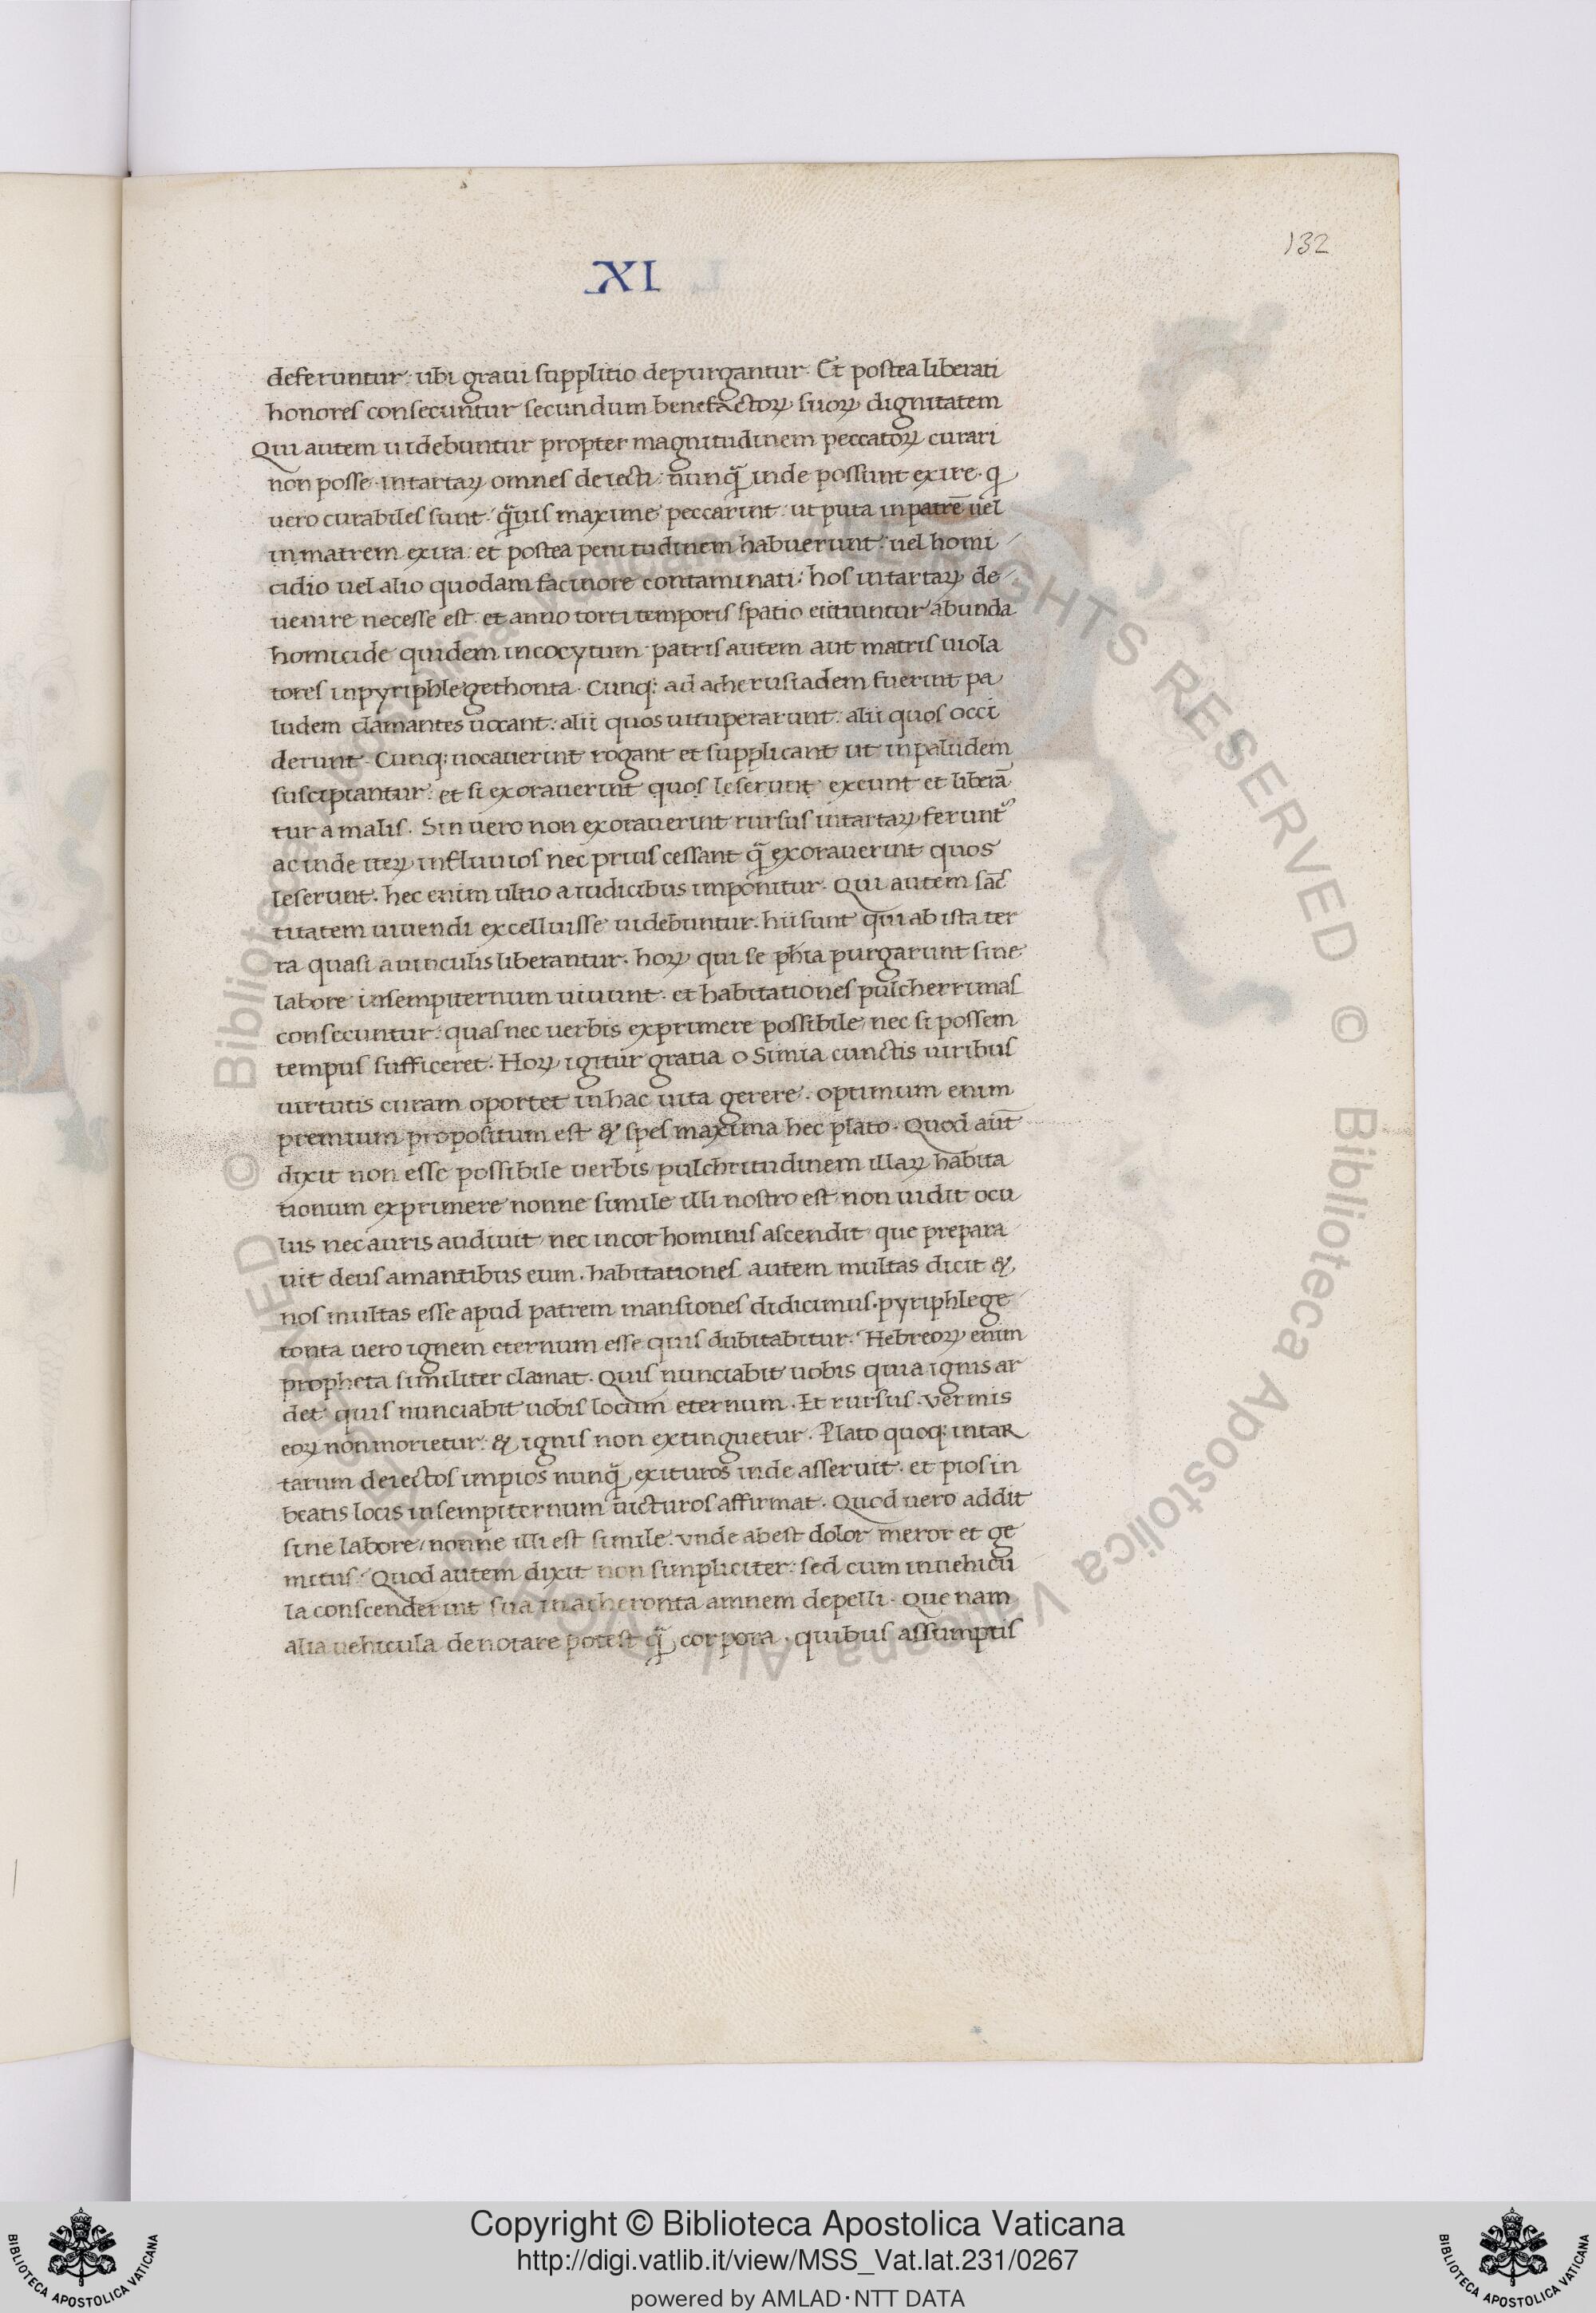 132
XI
deferuntur: ubi graui supplitio depurgantur. Et postea liberati
honores consecuntur secundum benefactoꝝ suoꝝ dignitatem
Qui autem uidebuntur propter magnitudinem peccatoꝝ curari
non posse. in tartaꝝ omnes deiecti: nunꝙ̃ inde possunt exire. q
uero curabiles sunt. ꝙ̃uis maxime peccarint: ut puta in patrē uel
in matrem exita: et postea penitudinem habuerunt: uel homi
cidio uel alio quodam facinore contaminati: hos in tartaꝝ de
uenire necesse est. et anno torti temporis spatio eitiuntur ab unda
homicide quidem in cocytum. patris autem aut matris uiola
tores in pyriphlegethonta. Cunq: ad acherusiadem fuerint pa
ludem clamantes uocant: alii quos uituperarunt: alii quos occi
derunt. Cunq: uocauerint rogant et supplicant ut in paludem
suscipiantur: et si exorauerint quos leserunt exeunt et liberā
tur a malis. Sin uero non exorauerint rursus in tartaꝝ ferunt᷑
ac inde iteꝝ in fluuios nec prius cessant ꝙ̃ exorauerint quos
leserunt. hec enim ultio a iudicibus imponitur. Qui autem sāc
titatem uiuendi excelluisse uidebuntur. hii sunt qui ab ista ter
ra quasi a uinculis liberantur. hoꝝ qui se phīa purgarunt sine
labore in sempiternum uiuunt. et habitationes pulcherrimas
consecuntur: quas nec uerbis exprimere possibile, nec si possem
tempus sufficeret. Hoꝝ igitur gratia o Simia cunctis uiribus
uirtutis curam oportet in hac uita gerere. optimum enim
premium propositum est & spes maxima hec plato. Quod aut̄
dixit non esse possibile uerbis pulchritudinem illaꝝ habita
tionum exprimere nonne simile illi nostro est. non uidit ocu
lus nec auris audiuit, nec in cor hominis ascendit que prepara
uit deus amantibus eum. habitationes autem multas dicit &
nos multas esse apud patrem mansiones didicimus. pyriphlege
tonta uero ignem eternum esse quis dubitabitur. Hebreoꝝ enim
propheta similiter clamat. Quis nunciabit uobis quia ignis ar
det quis nunciabit uobis locum eternum. Et rursus. vermis
eoꝝ non morietur: & ignis non extinguetur. Plato quoq: in tar
tarum deiectos impios nunꝙ̃ exituros inde asseruit. et pios in
beatis locis in sempiternum uicturos affirmat. Quod uero addit
sine labore, nonne illi est simile. vnde abest dolor meror et ge
mitus. Quod autem dixit non simpliciter: sed cum in uehicu
la conscenderint sua in acheronta amnem depelli. Que nam
alia uehicula denotare potest ꝙ̃ corpora. quibus assumptis
Copyright © Biblioteca Apostolica Vaticana
http://digi.vatlib.it/view/MSS_Vat.lat.231/0267
powered by AMLAD·NTT DATA